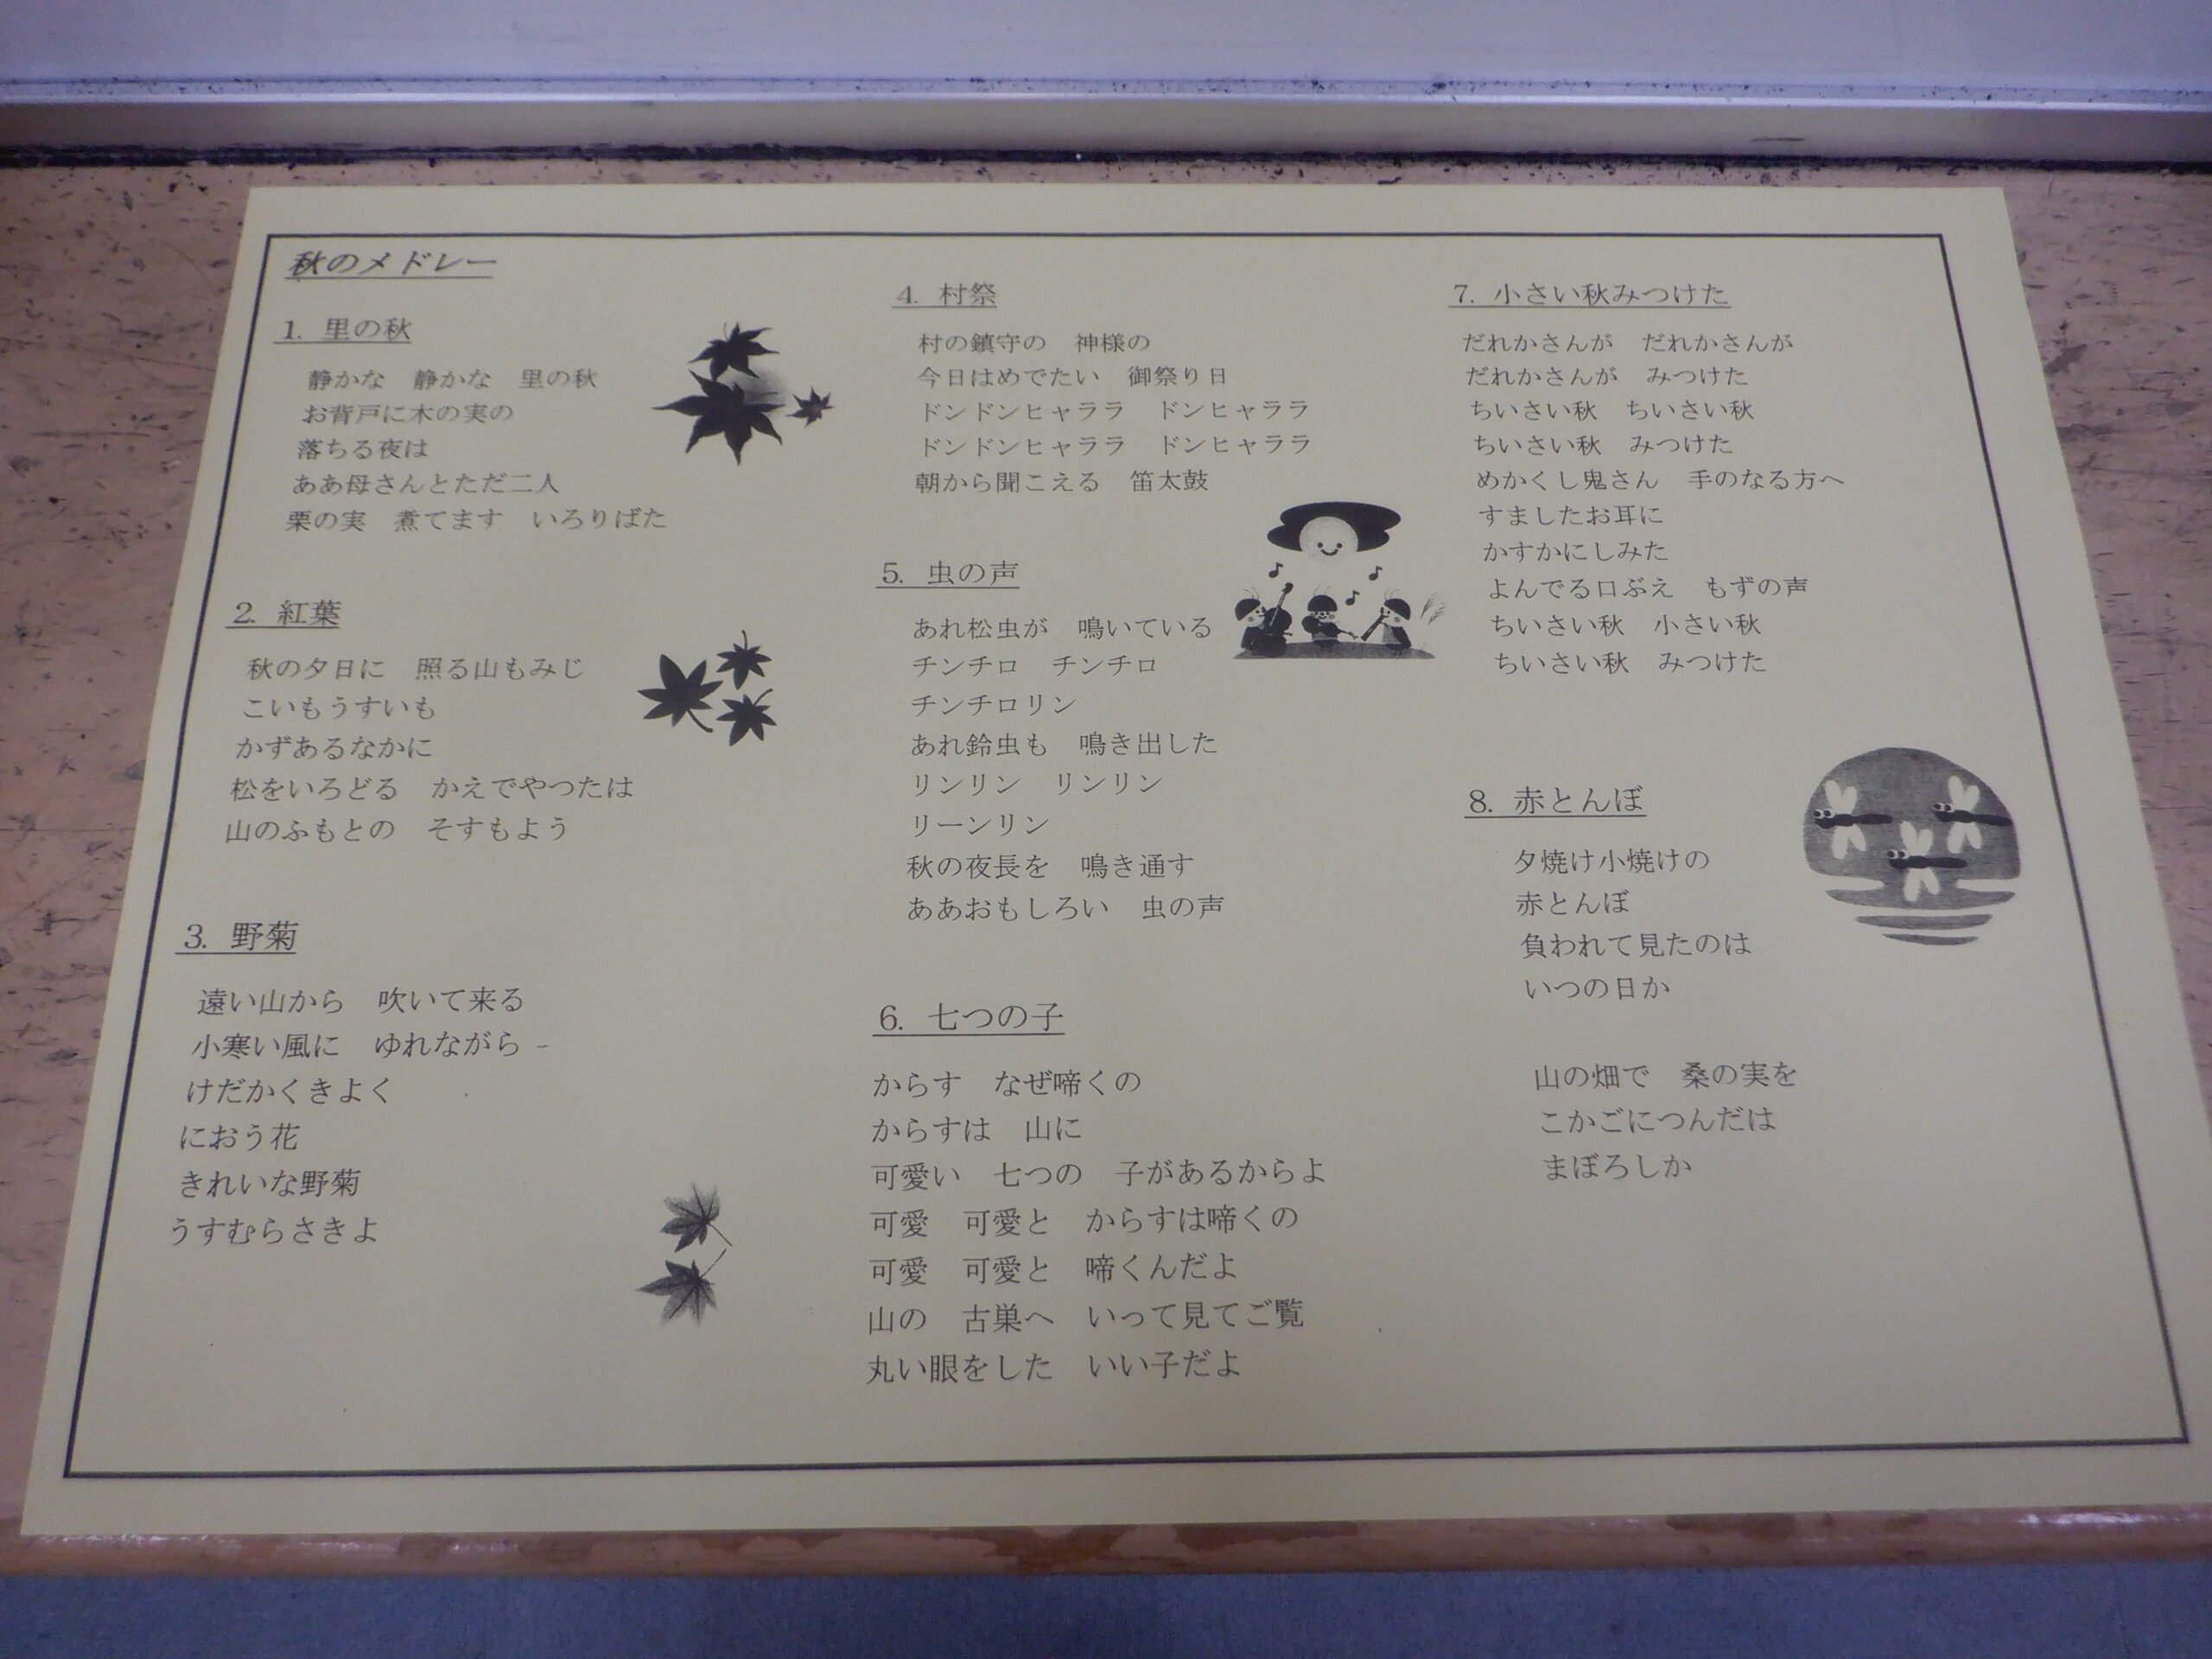 秋のメドレー
1. 里の秋
静かな　静かな　里の秋
お背戸に木の実の
落ちる夜は
ああ母さんとただ二人
栗の実　煮てます　いろりばた
2. 紅葉
秋の夕日に　照る山もみじ
こいもうすいも
かずあるなかに
松をいろどる　かえでやつたは
山のふもとの　そすもよう
3. 野菊
遠い山から　吹いて来る
小寒い風に　ゆれながら
けだかくきよく
におう花
きれいな野菊
うすむらさきよ
4. 村祭
村の鎮守の　神様の
今日はめでたい　御祭り日
ドンドンヒャララ　ドンヒャララ
ドンドンヒャララ　ドンヒャララ
朝から聞こえる　笛太鼓
5. 虫の声
あれ松虫が　鳴いている
チンチロ　チンチロ
チンチロリン
あれ鈴虫も　鳴き出した
リンリン　リンリン
リーンリン
秋の夜長を　鳴き通す
ああおもしろい　虫の声
6. 七つの子
からす　なぜ啼くの
からすは　山に
可愛い　七つの　子があるからよ
可愛　可愛と　からすは啼くの
可愛　可愛と　啼くんだよ
山の　古巣へ　いって見てご覧
丸い眼をした　いい子だよ
7. 小さい秋みつけた
だれかさんが　だれかさんが
だれかさんが　みつけた
ちいさい秋　ちいさい秋
ちいさい秋　みつけた
めかくし鬼さん　手のなる方へ
すましたお耳に
かすかにしみた
よんでる口ぶえ　もずの声
ちいさい秋　小さい秋
ちいさい秋　みつけた
8. 赤とんぼ
夕焼け小焼けの
赤とんぼ
負われて見たのは
いつの日か
山の畑で　桑の実を
こかごにつんだは
まぼろしか